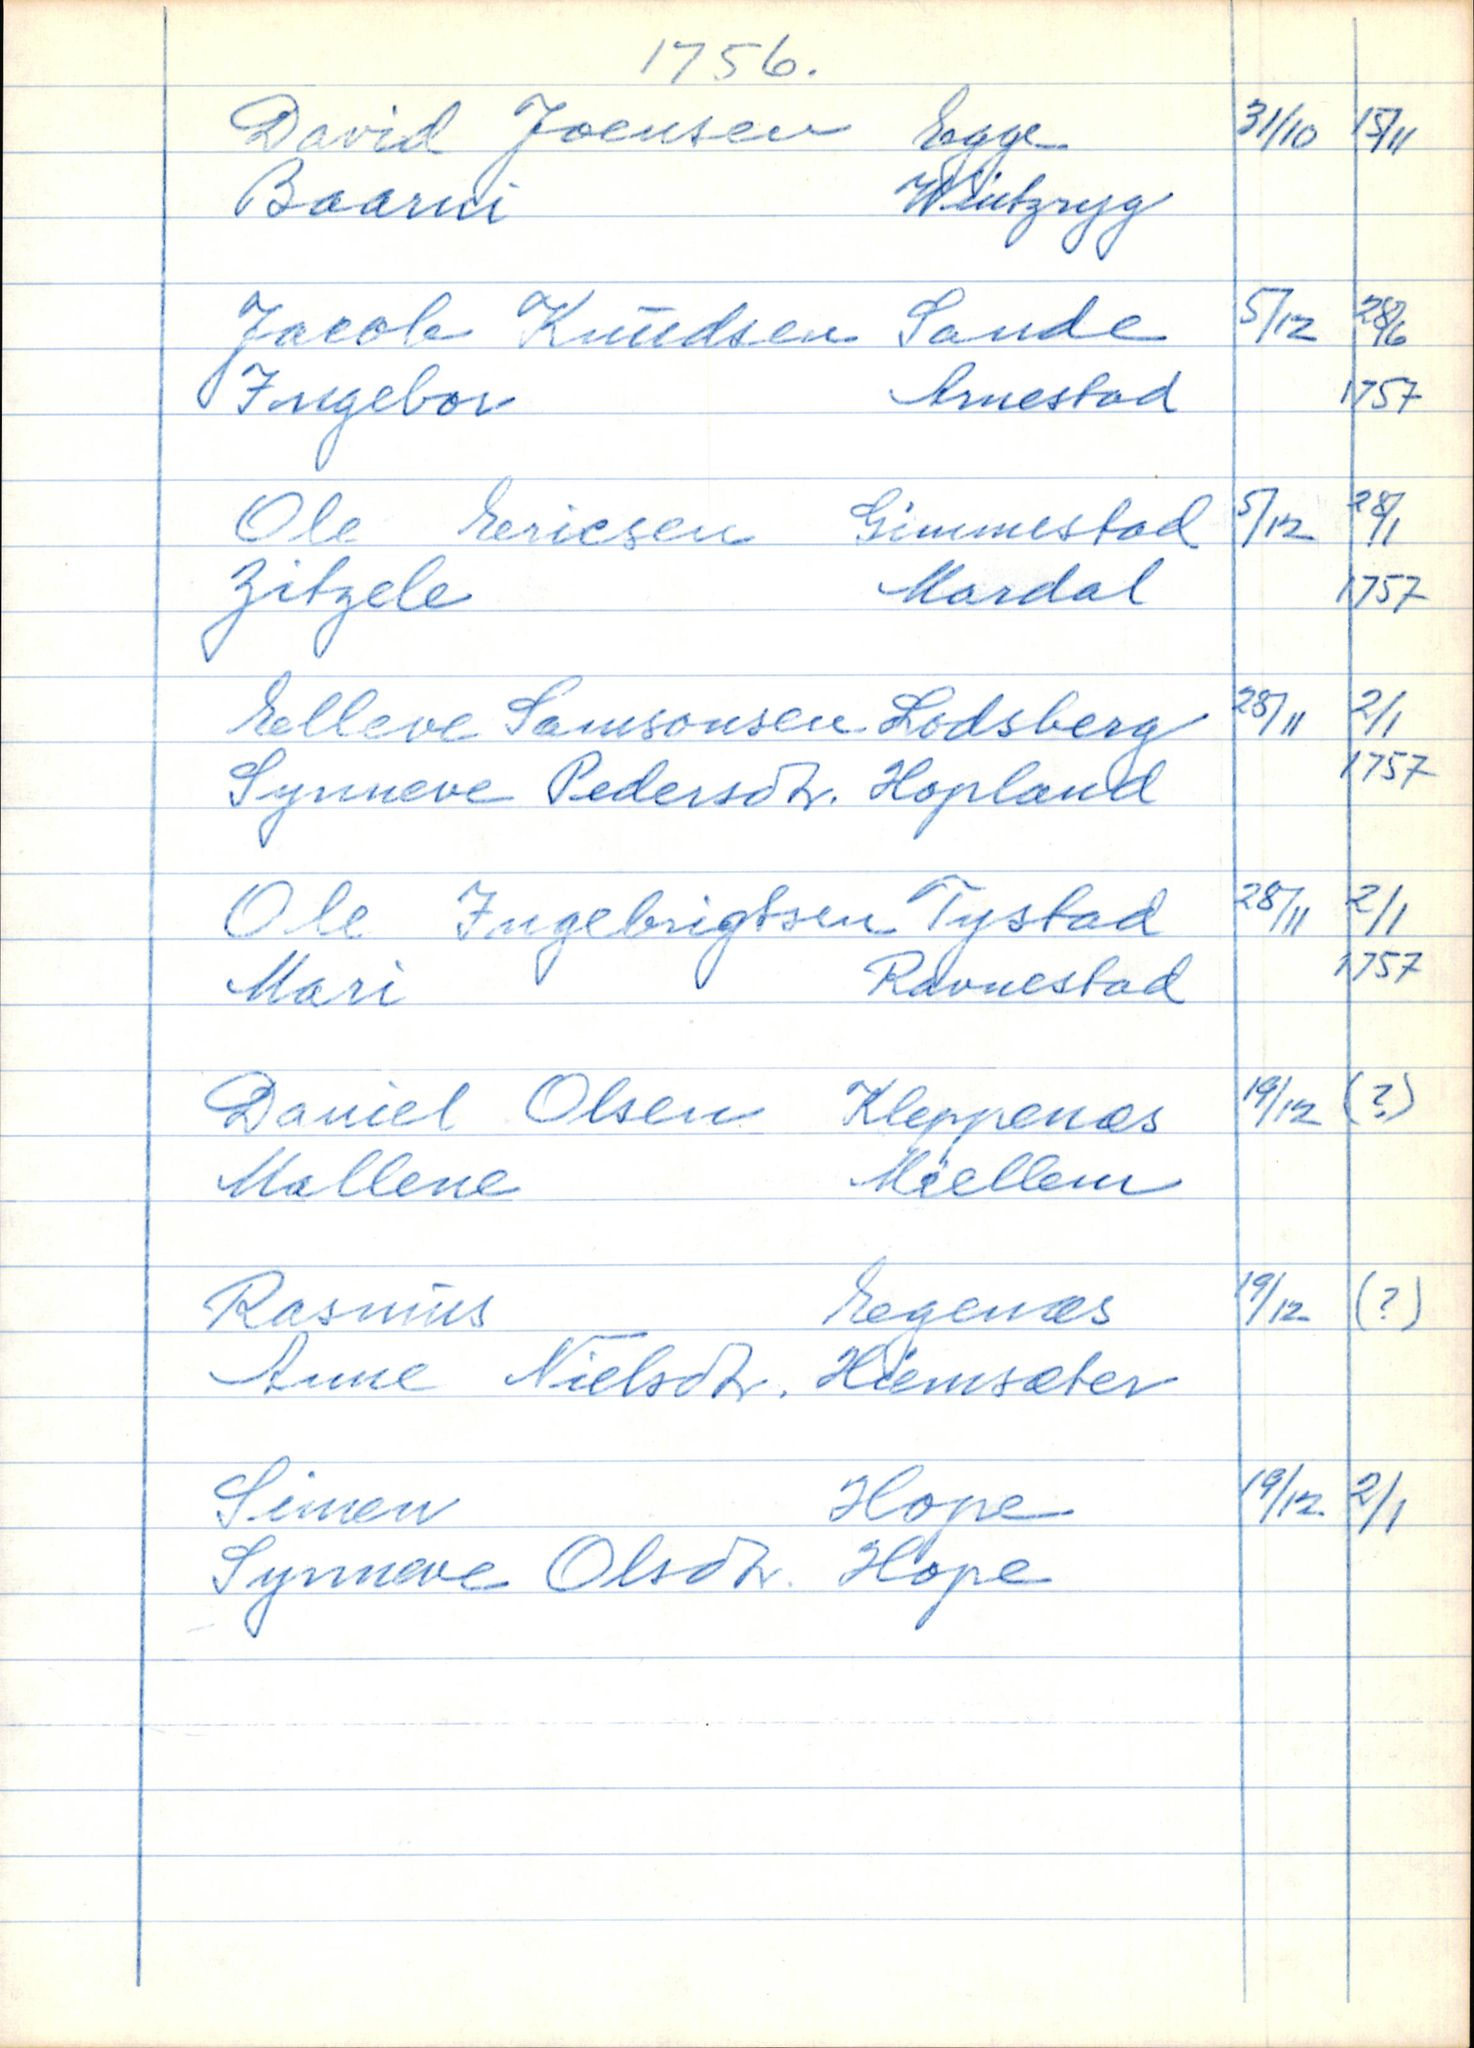 1756.
David Joensen Egge 31/10 15/11
Baarni Wintzryg
Jacob Knudsen Sande 5/12 28/6
Ingebor Arnestad 1757
Ole Ericsen Gimmestad 5/12 28/1
Zitzele Mardal 1757
Elleve Samsonsen Lodsberg 28/11 2/1
Synneve Pedersdtr. Hopland 1757
Ole Ingebrigtsen Tystad 28/11 2/1
Mari Ravnestad 1757
Daniel Olsen Kleppenæs 19/12 (?)
Mallene Miellem
Rasmus Eegenæs 19/12 (?)
Anne Nielsdtr. Hiemsæter
Simen Hope 19/12. 2/1
Synneve Olsdtr. Hope